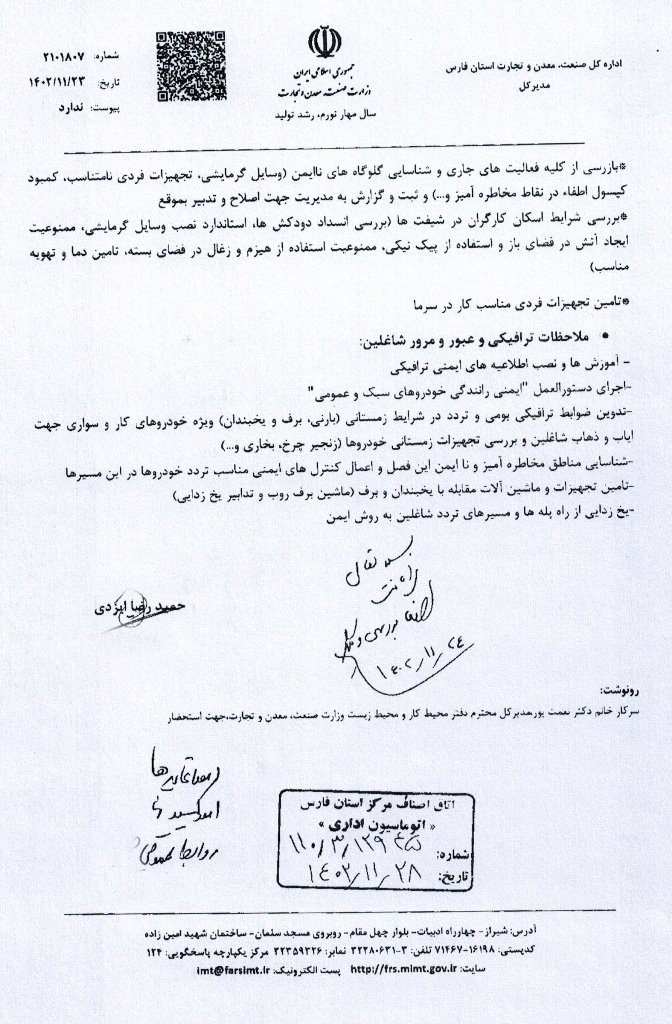 جمهوری اسلامی ایران
وزارت صنعت، معدن و تجارت
سال مهار تورم، رشد تولید
اداره کل صنعت، معدن و تجارت استان فارس
مدیرکل
شماره: ۲۱۰۱۸۰۷
تاریخ: ۱۴۰۲/۱۱/۲۳
پیوست: ندارد
*بازرسی از کلیه فعالیت های جاری و شناسایی گلوگاه های ناایمن (وسایل گرمایشی، تجهیزات فردی نامتناسب، کمبود
کپسول اطفاء در نقاط مخاطره آمیز و...) و ثبت و گزارش به مدیریت جهت اصلاح و تدبیر بموقع
*بررسی شرایط اسکان کارگران در شیفت ها (بررسی انسداد دودکش ها، استاندارد نصب وسایل گرمایشی، ممنوعیت
ایجاد آتش در فضای باز و استفاده از پیک نیکی، ممنوعیت استفاده از هیزم و زغال در فضای بسته، تامین دما و تهویه
مناسب)
*تامین تجهیزات فردی مناسب کار در سرما
• ملاحظات ترافیکی و عبور و مرور شاغلین:
- آموزش ها و نصب اطلاعیه های ایمنی ترافیکی
-اجرای دستورالعمل "ایمنی رانندگی خودروهای سبک و عمومی"
-تدوین ضوابط ترافیکی بومی و تردد در شرایط زمستانی (بارنی، برف و یخبندان) ویژه خودروهای کار و سواری جهت
ایاب و ذهاب شاغلین و بررسی تجهیزات زمستانی خودروها (زنجیر چرخ، بخاری و...)
-شناسایی مناطق مخاطره آمیز و نا ایمن این فصل و اعمال کنترل های ایمنی مناسب تردد خودروها در این مسیرها
-تامین تجهیزات و ماشین آلات مقابله با یخبندان و برف (ماشین برف روب و تدابیر یخ زدایی)
-یخ زدایی از راه پله ها و مسیرهای تردد شاغلین به روش ایمن
بسمه تعالی
۱۴۰۲/۱۱/۲۴
حمید رضا ایزدی
رونوشت:
سرکار خانم دکتر نعمت پورمدیرکل محترم دفتر محیط کار و محیط زیست وزارت صنعت، معدن و تجارت،جهت استحضار
روابط عمومی
اتاق اصناف مرکز استان فارس
« اتوماسیون اداری »
شماره: ۱۱۰/۳/۱۲۹۴۵
تاریخ: ۱۴۰۲/۱۱/۲۸
آدرس: شیراز- چهارراه ادبیات- بلوار چهل مقام- روبروی مسجد سلمان- ساختمان شهید امین زاده
کدپستی: ۱۶۱۹۸-۷۱۴۶۷ تلفن: ۳-۳۲۲۸۰۶۳۱ نمابر: ۳۲۲۵۹۳۲۶ مرکز یکپارچه پاسخگویی: ۱۲۴
سایت: http://frs.mimt.gov.ir پست الکترونیک: imt@farsimt.ir